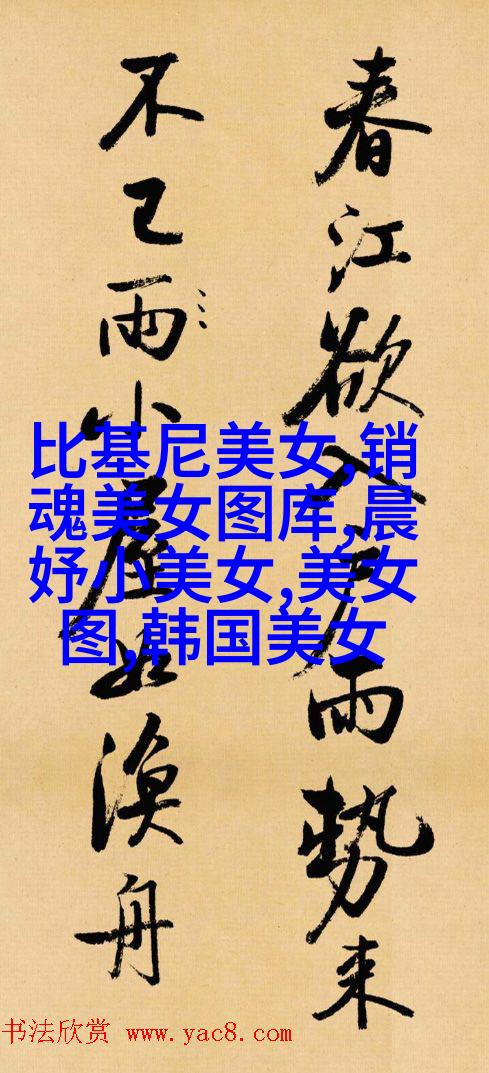 春江欲入户雨势来
不已雨小屋如渔舟
比基尼美女,销
魂美女图库,晨
妤小美女,美女
图,韩国美女
书法欣赏 www.yac8.com